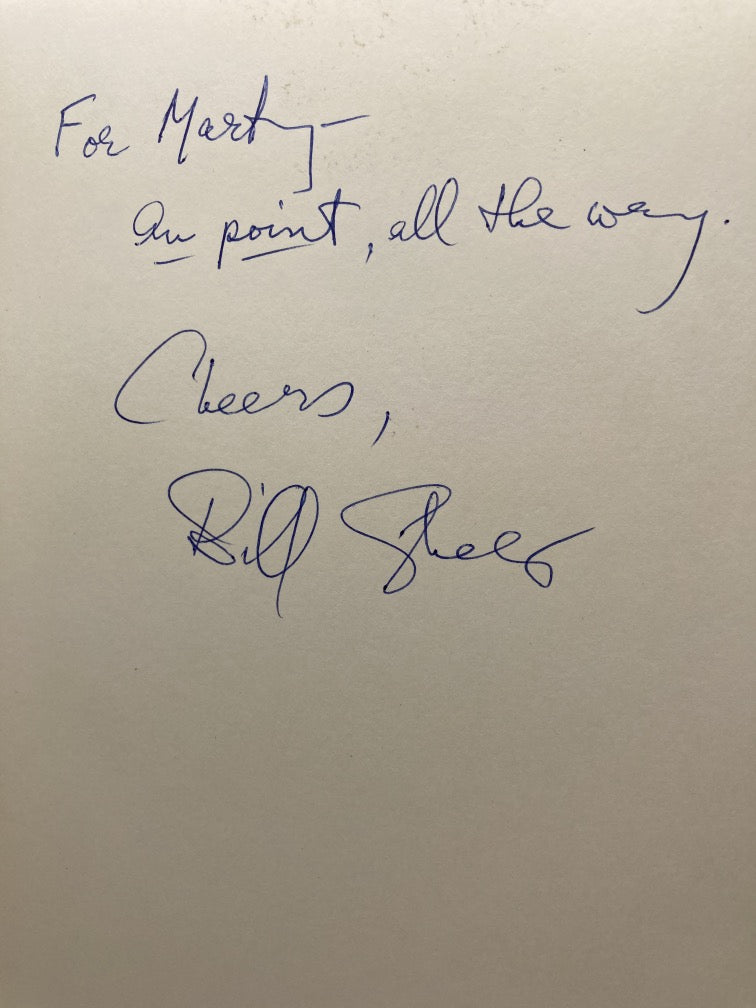 For Marty—
au point, all the way.
Cheers,
Bill